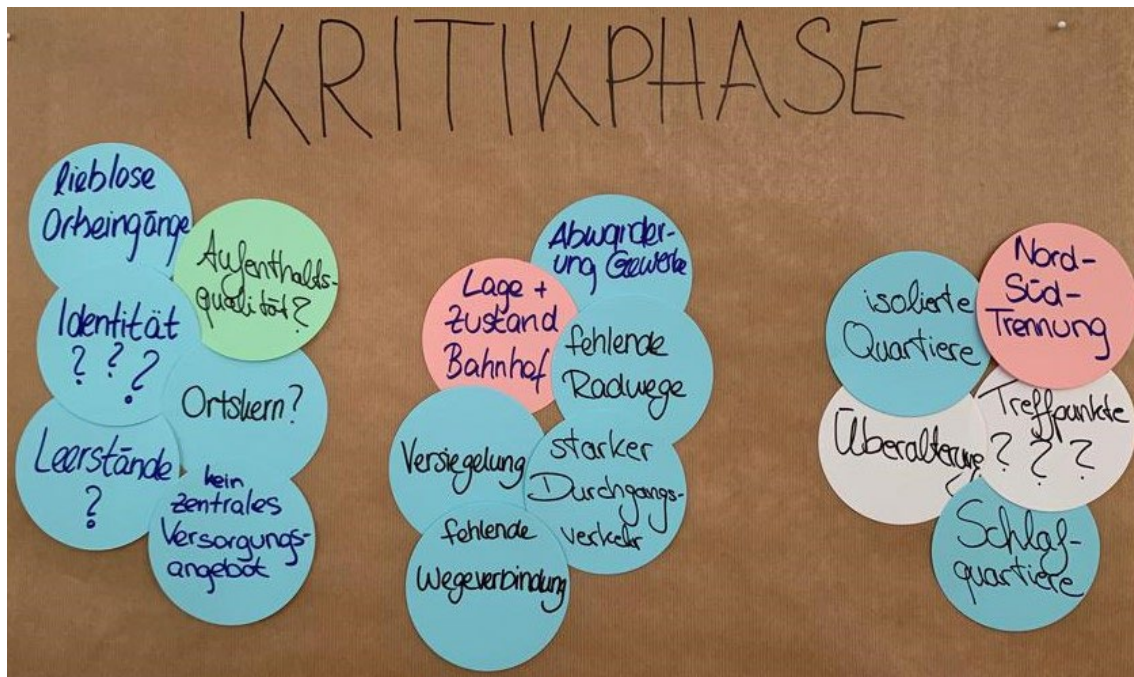 KRITIKPHASE
lieblose
Ortseingänge
Aufenthalts-
qualität?
Identität
? ? ?
Ortskern?
Leerstände
?
kein
zentrales
Versorgungs-
angebot
Abwander-
ung Gewerbe
Lage +
Zustand
Bahnhof
fehlende
Radwege
Versiegelung
starker
Durchgangs-
verkehr
fehlende
Wegeverbindung
isolierte
Quartiere
Nord-
Süd-
Trennung
Überalterung
Treffpunkte
? ? ?
Schlaf-
quartiere